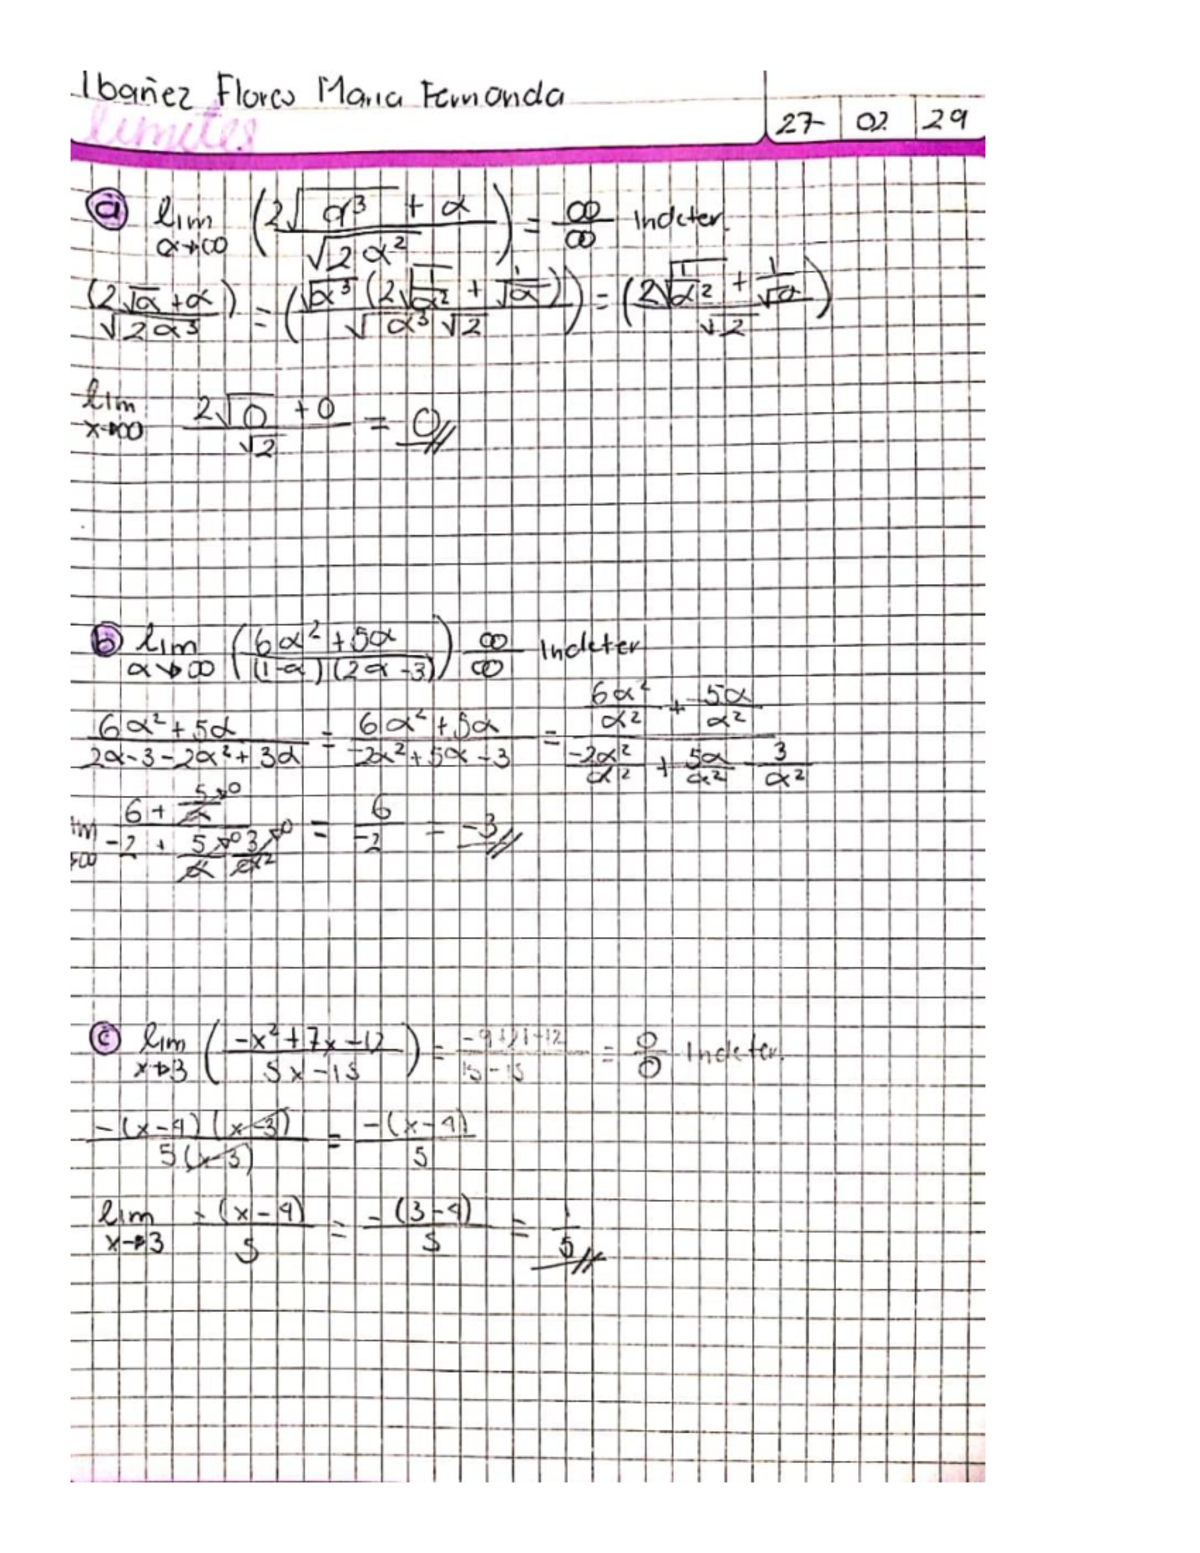 Ibañez Flores Maria Fernanda
límites
27 02 29
a) lim α→∞ (2√α³ + α / √2α²) = ∞/∞ Indeter.
(2√α + α / √2α³) = (√α³ (2√1/α² + 1/√α) / √α³ √2) = (2√1/α² + 1/√α / √2)
lim x→∞ 2√0 + 0 / √2 = 0
b) lim α→∞ (6α² + 5α / (1-α)(2α-3)) ∞/∞ Indeter
6α² + 5α / 2α-3-2α²+3α = 6α² + 5α / -2α²+5α-3 = 6α²/α² + 5α/α² / -2α²/α² + 5α/α² - 3/α²
lim →∞ 6 + 5/α→0 / -2 + 5/α→0 3/α²→0 = 6/-2 = -3
c) lim x→3 (-x²+7x-12 / 5x-15) = -9+21-12 / 15-15 = 0/0 Indeter.
-(x-4)(x-3) / 5(x-3) = -(x-4) / 5
lim x→3 -(x-4) / 5 = -(3-4) / 5 = 1/5